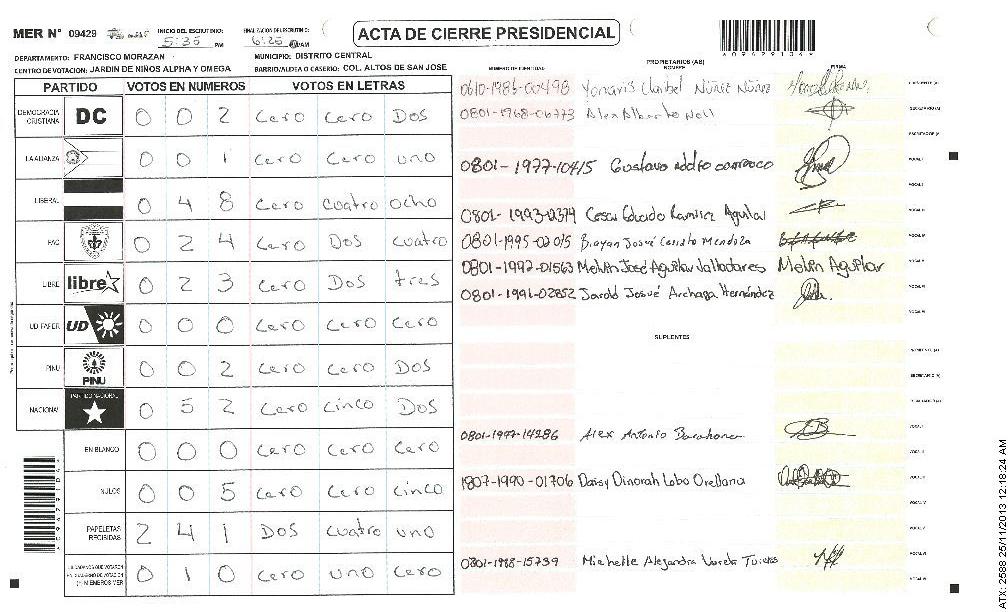 MER N° 09429 INICIO DEL ESCRUTINIO: 5:35 PM FINALIZACION DE ESCRUTINIO: 6:25 AM
ACTA DE CIERRE PRESIDENCIAL
DEPARTAMENTO: FRANCISCO MORAZAN MUNICIPIO: DISTRITO CENTRAL
CENTRO DE VOTACION: JARDIN DE NIÑOS ALPHA Y OMEGA BARRIO/ALDEA O CASERIO: COL. ALTOS DE SAN JOSE
PARTIDO VOTOS EN NUMEROS VOTOS EN LETRAS
DEMOCRACIA CRISTIANA DC 0 0 2 Cero Cero Dos
LA ALIANZA 0 0 1 Cero Cero uno
LIBERAL 0 4 8 Cero cuatro ocho
PAC 0 2 4 Cero Dos cuatro
LIBRE libre 0 2 3 Cero Dos tres
UD FAPER UD 0 0 0 Cero Cero Cero
PINU PINU 0 0 2 Cero Cero Dos
NACIONAL PARTIDO NACIONAL 0 5 2 Cero cinco Dos
EN BLANCO 0 0 0 Cero Cero Cero
NULOS 0 0 5 Cero Cero cinco
PAPELETAS RECIBIDAS 2 4 1 Dos cuatro uno
CIUDADANOS QUE VOTARON EN CUADERNO DE VOTACION MIEMBROS MER 0 1 0 Cero uno Cero
PROPIETARIOS (AS)
NUMERO DE IDENTIDAD NOMBRE FIRMA
0610-1986-00498 Yonaris Claribel Núñez Núñez
0801-1968-06773 Alex Alberto Nell
0801-1977-10415 Gustavo Adolfo
0801-1993-12374 Cesar Eduardo Ramirez Aguilar
0801-1995-02015 Brayan Josué Mendoza
0801-1992-01563 Melvin José Aguilar Valladares Melvin Aguilar
0801-1991-02852 Jarold Josué Archaga Hernández
SUPLENTES
0801-1997-14286 Alex Antonio Barahona
1807-1990-01706 Daisy Dinorah Lobo Orellana
0801-1988-15739 Michelle Alejandra Varela
ATX: 2588 25/11/2013 12:18:24 AM